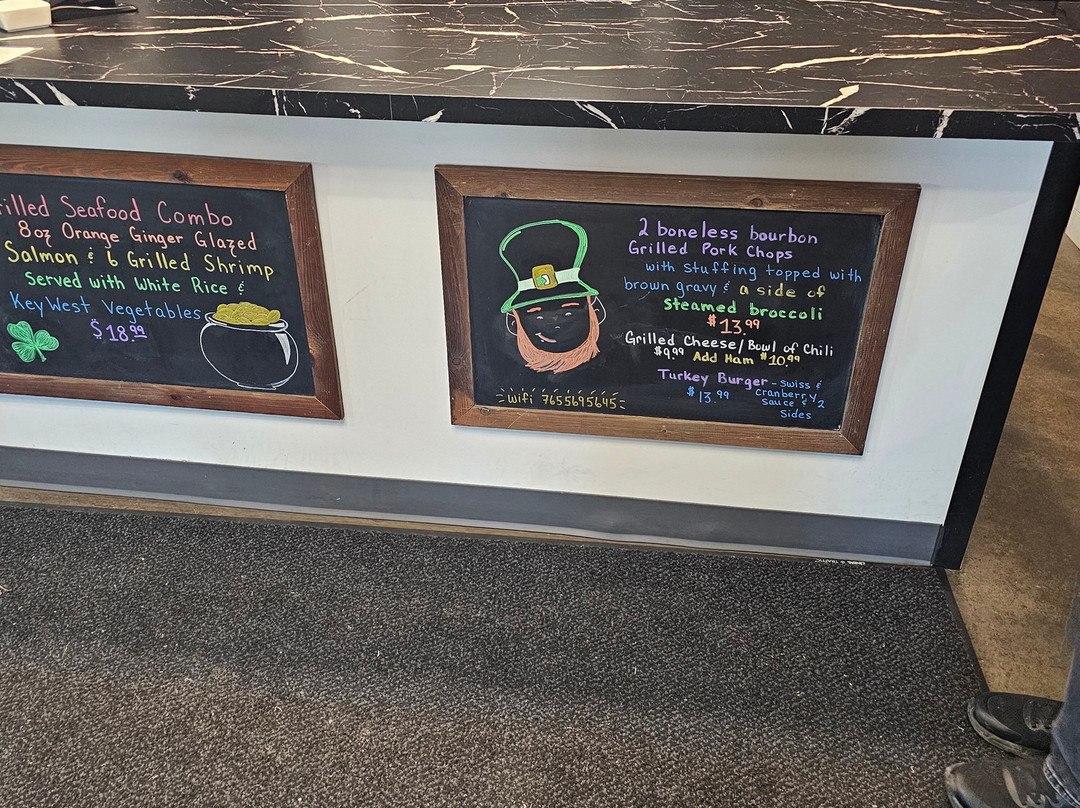 Grilled Seafood Combo
8oz Orange Ginger Glazed
Salmon & 6 Grilled Shrimp
Served with White Rice &
Key West Vegetables
$18.99
2 boneless bourbon
Grilled Pork Chops
with stuffing topped with
brown gravy & a side of
Steamed broccoli
$13.99
Grilled Cheese/Bowl of Chili
$9.99 Add Ham $10.99
Turkey Burger - Swiss &
$13.99 cranberry
sauce & 2
Sides
- Wifi 7655695645 -